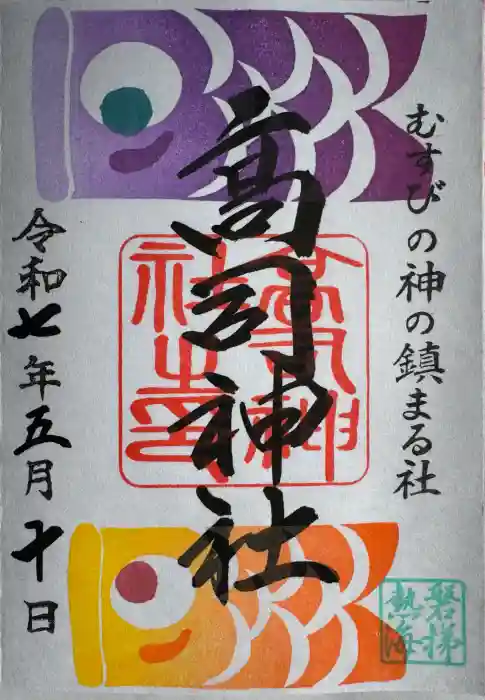 むすびの神の鎮まる社
高司神社
令和七年五月十日
高司神社之印
磐梯熱海